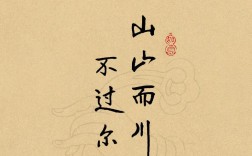 山山而川
不过尔